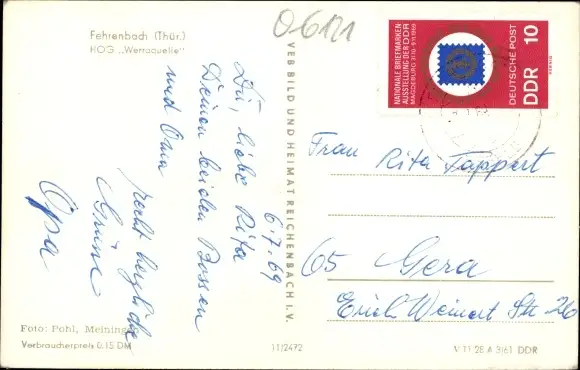 Fehrenbach (Thür.)
HOG „Werraquelle"
06121
6.7.69
Dir, liebe Rita
Deinen beiden Bossen
und Oma
recht herzliche
Grüße
Opa
Foto: Pohl, Meiningen
Verbraucherpreis 0,15 DM
VEB BILD UND HEIMAT REICHENBACH I. V.
11/2472
NATIONALE BRIEFMARKEN
AUSSTELLUNG DER DDR
MAGDEBURG 31.10.-9.11.1969
DEUTSCHE POST
DDR 10
Frau Rita Tappert
65 Gera
Erich Weinert Str 26
V 11 28 A 3/61 DDR